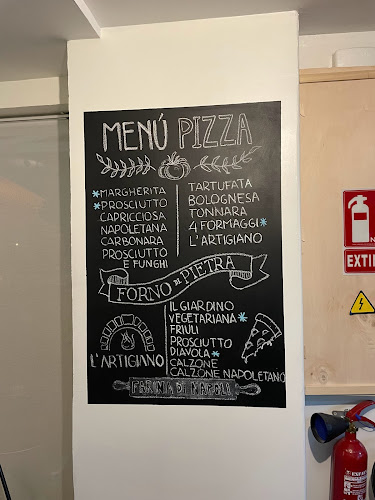 MENÚ PIZZA
* MARGHERITA
* PROSCIUTTO
CAPRICCIOSA
NAPOLETANA
CARBONARA
PROSCIUTTO
E FUNGHI
TARTUFATA
BOLOGNESA
TONNARA
4 FORMAGGI *
L'ARTIGIANO
FORNO DI PIETRA
L'ARTIGIANO
IL GIARDINO
VEGETARIANA *
FRIULI
PROSCIUTTO
DIAVOLA *
CALZONE
CALZONE NAPOLETANO
FARINA DI NAPOLI